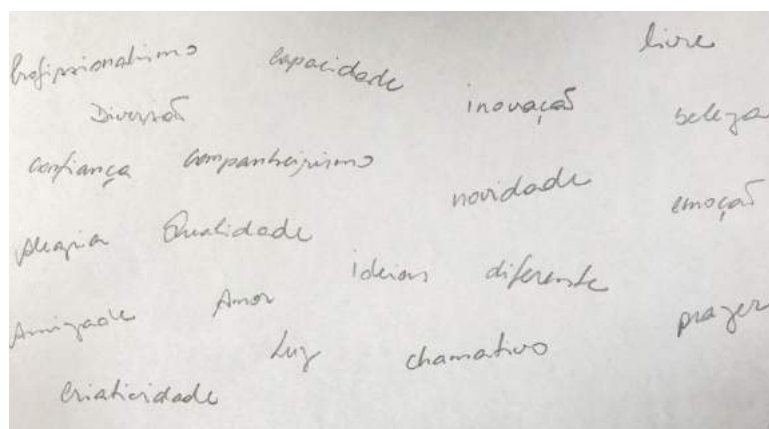 Profissionalismo capacidade livre
Diversão inovação beleza
confiança companheirismo
novidade emoção
Alegria Qualidade
ideias diferente
Amizade Amor prazer
Luz chamativo
criatividade